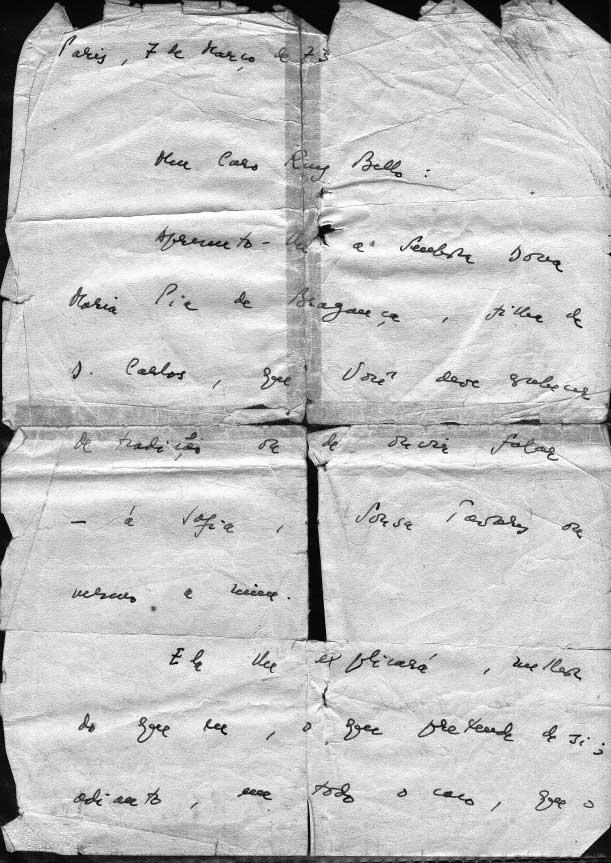 Paris, 7 de Março de 73
Meu Caro Ruy Bello:
Apresento-lhe a Senhora Dona
Maria Pia de Bragança, filha de
D. Carlos, que Você deve conhecer
de tradição ou de ouvir falar
— à Sofia, Sousa Tavares ou
mesmo a mim.
Ela lhe explicará, melhor
do que eu, o que pretende de si;
adianto, em todo o caso, que o